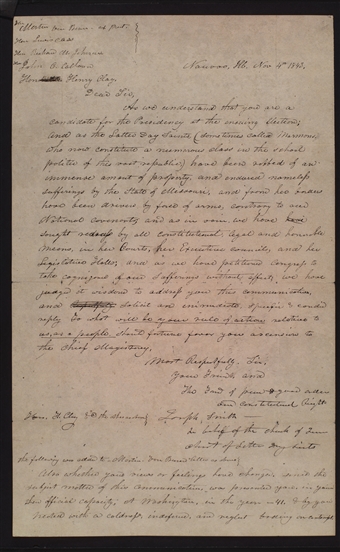 Martin Van Buren
Hon Lewis Cass
Hon Richard M. Johnson
Hon John C. Calhoun
Hon Henry Clay,
Nauvoo, Ill. Nov 4th 1843.
Dear Sir,
As we understand that you are a
candidate for the Presidency at the ensuing Election;
and as the Latter Day Saints (sometimes called Mormons,
who now constitute a numerous class in the school
politic of this vast republic,) have been robbed of an
immense amount of property, and endured nameless
sufferings by the State of Missouri, and from her borders
have been driven by force of arms, contrary to our
National covenants; and as in vain we have
sought redress by all constitutional, legal and honorable
means, in her Courts, her Executive councils, and her
Legislative Halls; and as we have petitioned Congress to
take cognizance of our sufferings without effect; we have
judged it wisdom to address you this communication,
and solicit an immediate, specific & candid
reply To what will be your rule of action relative to
us, as a people, should fortune favor your ascension to
the Chief Magistracy.
Most Respectfully, Sir,
Your Friend, and
The friend of peace, good order
and constitutional Rights
Joseph Smith
Hon. H. Clay,
in behalf of the Church of Jesus
Christ of Latter Day Saints
The following was added to Martin Van Buren's letter
Also whether your views or feelings have changed since the
subject matter of this communication, was presented you, in your
then official capacity, at Washington, in the year 41, & by you
treated with a coldness, indifference, and neglect, bordering on contempt